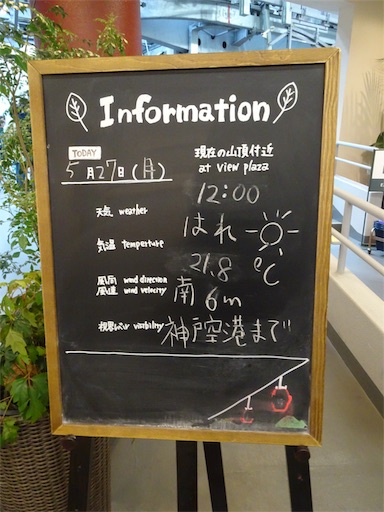 Information
TODAY
5月27日(月)
現在の山頂付近
at view plaza
12:00
天気 weather はれ
気温 temperture 21.8℃
風向 wind direction
風速 wind velocity
南 6m
visibility 神戸空港まで